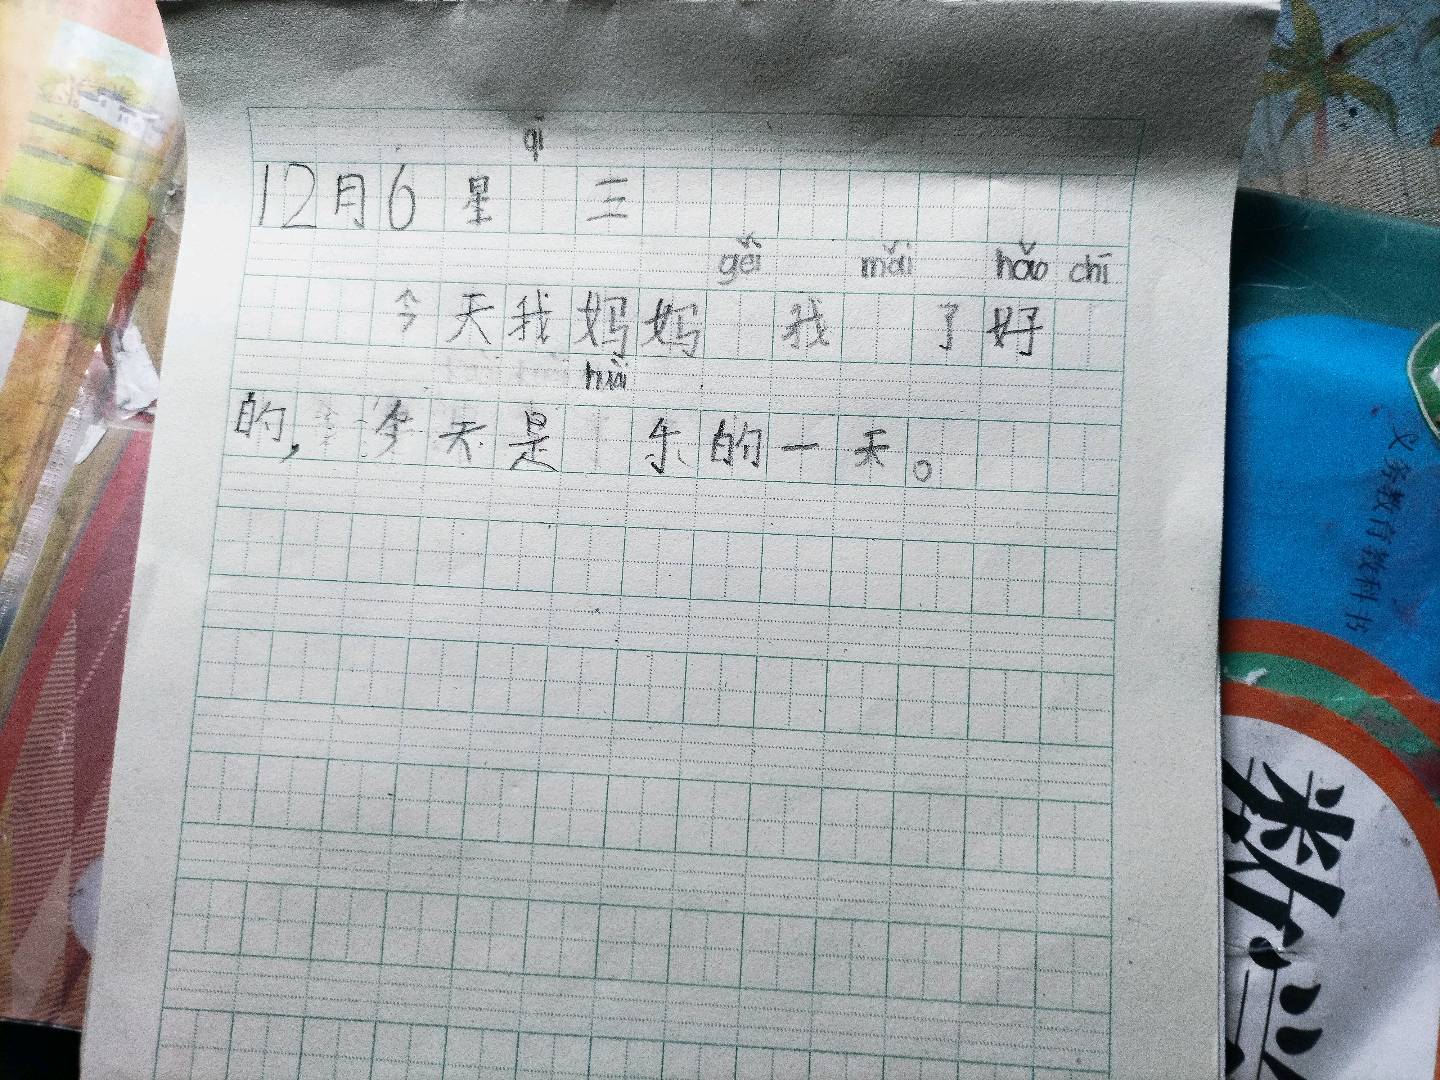 qī
12月6 星 三
gěi mǎi hǎo chī
今天我妈妈 我 了好
huài
的, 今天是 乐的一天。
义务教育教科书
数学